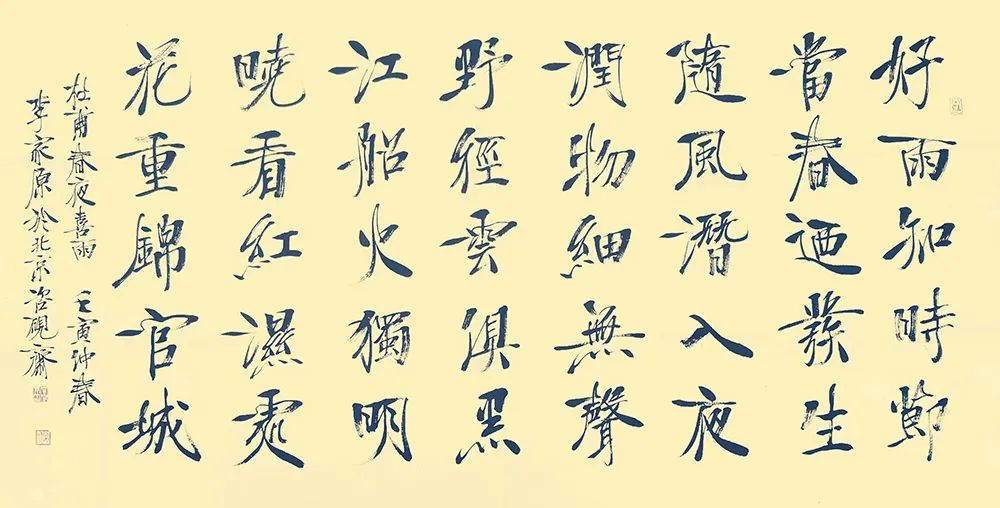 好雨知時節
當春迺發生
隨風潛入夜
潤物細無聲
野徑雲俱黑
江船火獨明
曉看紅濕處
花重錦官城
杜甫春夜喜雨 壬寅仲春
李家原於北京硯齋